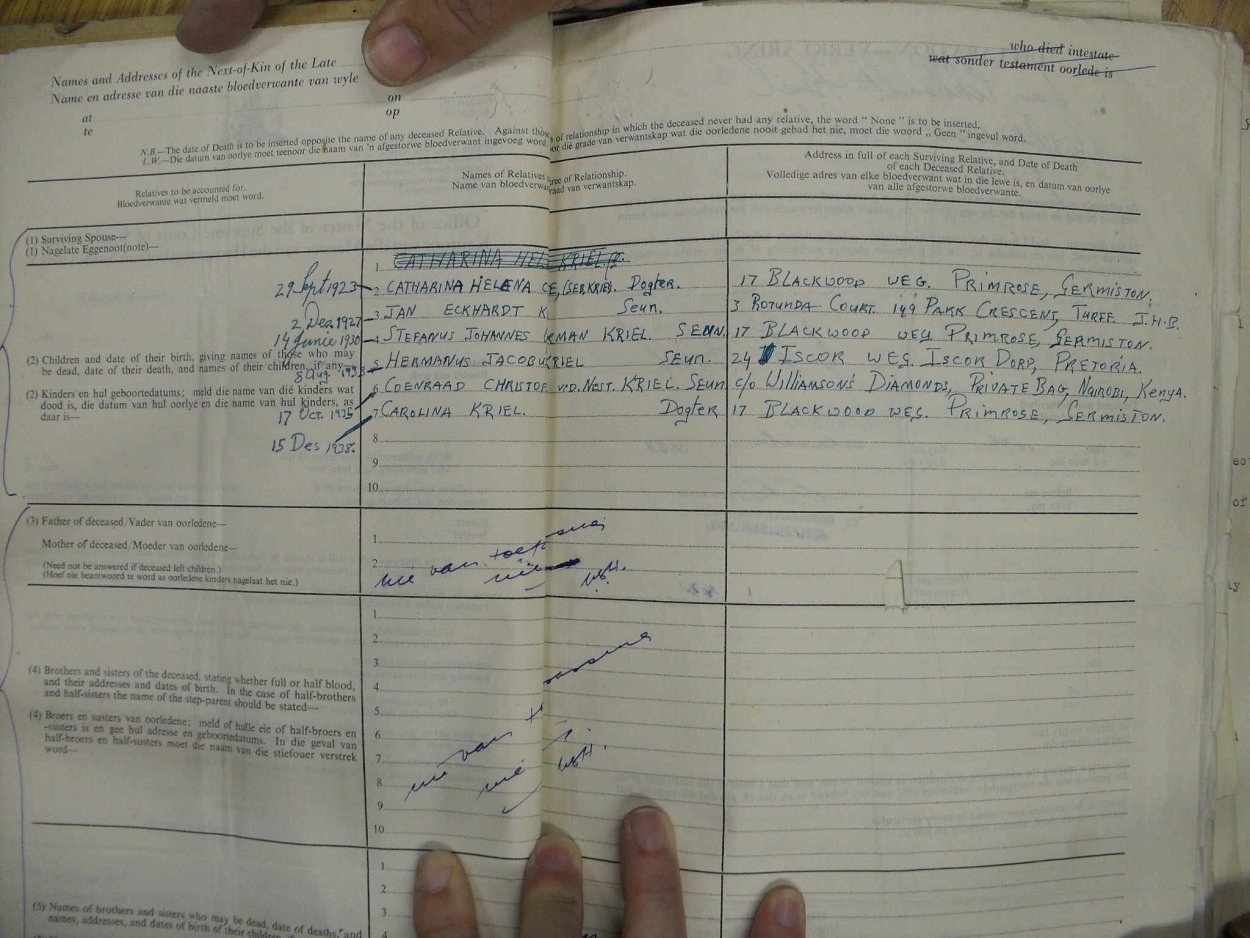 Names and Addresses of the Next-of-Kin of the Late
who died intestate
Name en adresse van die naaste bloedverwante van wyle
wat sonder testament oorlede is
at
on
te
op
N.B.—The date of Death is to be inserted opposite the name of any deceased Relative. Against those of relationship in which the deceased never had any relative, the word " None " is to be inserted.
L.W.—Die datum van oorlye moet teenoor die naam van 'n afgestorwe bloedverwant ingevoeg word die grade van verwantskap wat die oorledene nooit gehad het nie, moet die woord „ Geen " ingevul word.
Relatives to be accounted for.
Bloedverwante wat vermeld moet word.
Names of Relatives ree of Relationship.
Name van bloedverwa raad van verwantskap.
Address in full of each Surviving Relative, and Date of Death
of each Deceased Relative.
Volledige adres van elke bloedverwant wat in die lewe is, en datum van oorlye
van alle afgestorwe bloedverwante.
(1) Surviving Spouse—
(1) Nagelate Eggenoot(note)—
1 CATHARINA HEL KRIEL
29 Sept 1923 2 CATHARINA HELENA CE, (GEB. KRIEL). Dogter. 17 BLACKWOOD WEG. PRIMROSE, GERMISTON.
2 Des. 1927 3 JAN ECKHARDT K Seun. 3 ROTUNDA COURT. 149 PARK CRESCENT, TURFF. J.H.B.
14 Junie 1930 4 STEFANUS JOHANNES RMAN KRIEL SEUN. 17 BLACKWOOD WEG. PRIMROSE, GERMISTON.
(2) Children and date of their birth, giving names of those who may
be dead, date of their death, and names of their children, if any—
8 Aug 1933 5 HERMANUS JACOBU KRIEL SEUN. 24 ISCOR WEG. ISCOR DORP, PRETORIA.
(2) Kinders en hul geboortedatums; meld die name van dié kinders wat
dood is, die datum van hul oorlye en die name van hul kinders, as
daar is—
17 Oct. 1935 6 COENRAAD CHRISTOF v.D. NEST. KRIEL. Seun c/o WILLIAMSON'S DIAMONDS, PRIVATE BAG, NAIROBI, KENYA.
15 Des 1938. 7 CAROLINA KRIEL. Dogter 17 BLACKWOOD WEG. PRIMROSE, GERMISTON.
8
9
10
(3) Father of deceased/Vader van oorledene—
1
Mother of deceased/Moeder van oorledene—
2
(Need not be answered if deceased left children.)
(Hoef nie beantwoord te word as oorledene kinders nagelaat het nie.)
nie van toepassing
nie
1
2
3
4
(4) Brothers and sisters of the deceased, stating whether full or half blood,
and their addresses and dates of birth. In the case of half-brothers
and half-sisters the name of the step-parent should be stated—
5
6
(4) Broers en susters van oorledene; meld of hulle eie of half-broers en
-susters is en gee hul adresse en geboortedatums. In die geval van
half-broers en half-susters moet die naam van die stiefouer verstrek
word—
7
8
9
10
nie van
nie
1
2
3
4
(5) Names of brothers and sisters who may be dead, date of deaths, and
names, addresses, and dates of birth of their children